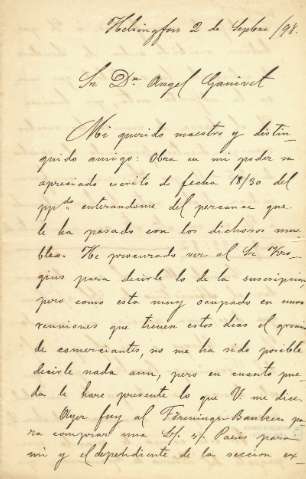 Helsingfors 2 de Sepbre /98.
Sr Dn Angel Ganivet
Mi querido maestro y distin-
guido amigo: Obra en mi poder su
apreciado escrito de fecha 18/30 del
ppto enterandome del percance que
le ha pasado con los dichosos mue-
bles. He procurado ver al Sr Kro-
gius para decirle lo de la suscripcion
pero como esta muy ocupado en unas
reuniones que tienen estos dias el gremio
de comerciantes, no me ha sido posible
decirle nada aun, pero en cuanto pue-
da le hare presente lo que V. me dice.
Ayer fuy al Föreningsbanken pa-
ra comprar una L/. s/ Paris para
mi y el dependiente de la seccion ex-